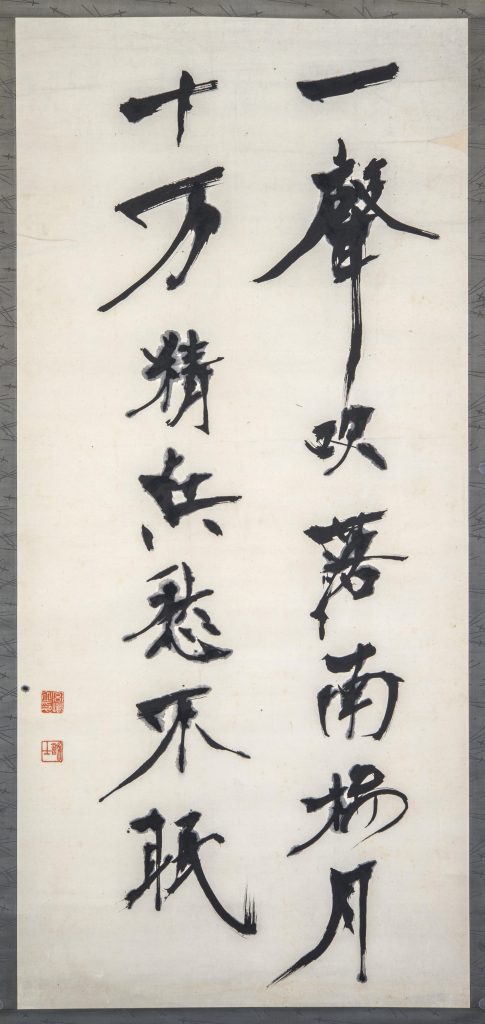 一聲吹落南樓月
十万精兵愁不眠